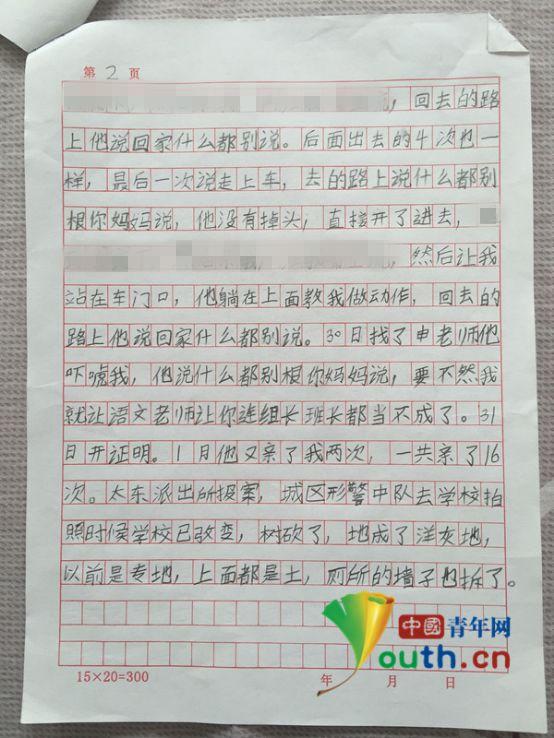 第2页
，回去的路
上他说回家什么都别说。后面出去的4次也一
样，最后一次说走上车，去的路上说什么都别
根你妈妈说，他没有掉头，直接开了进去，
，然后让我
站在车门口，他躺在上面教我做动作，回去的
路上他说回家什么都别说。30日找了申老师他
吓唬我，他说什么都别根你妈妈说，要不然我
就让语文老师让你连组长班长都当不成了。31
日开证明。1月他又亲了我两次，一共亲了16
次。太东派出所投案，城区形警中队去学校拍
照时候学校已改变，树砍了，地成了洋灰地，
以前是专地，上面都是土，厕所的墙子也拆了。
中國青年网
Youth.cn
15×20=300 年 月 日